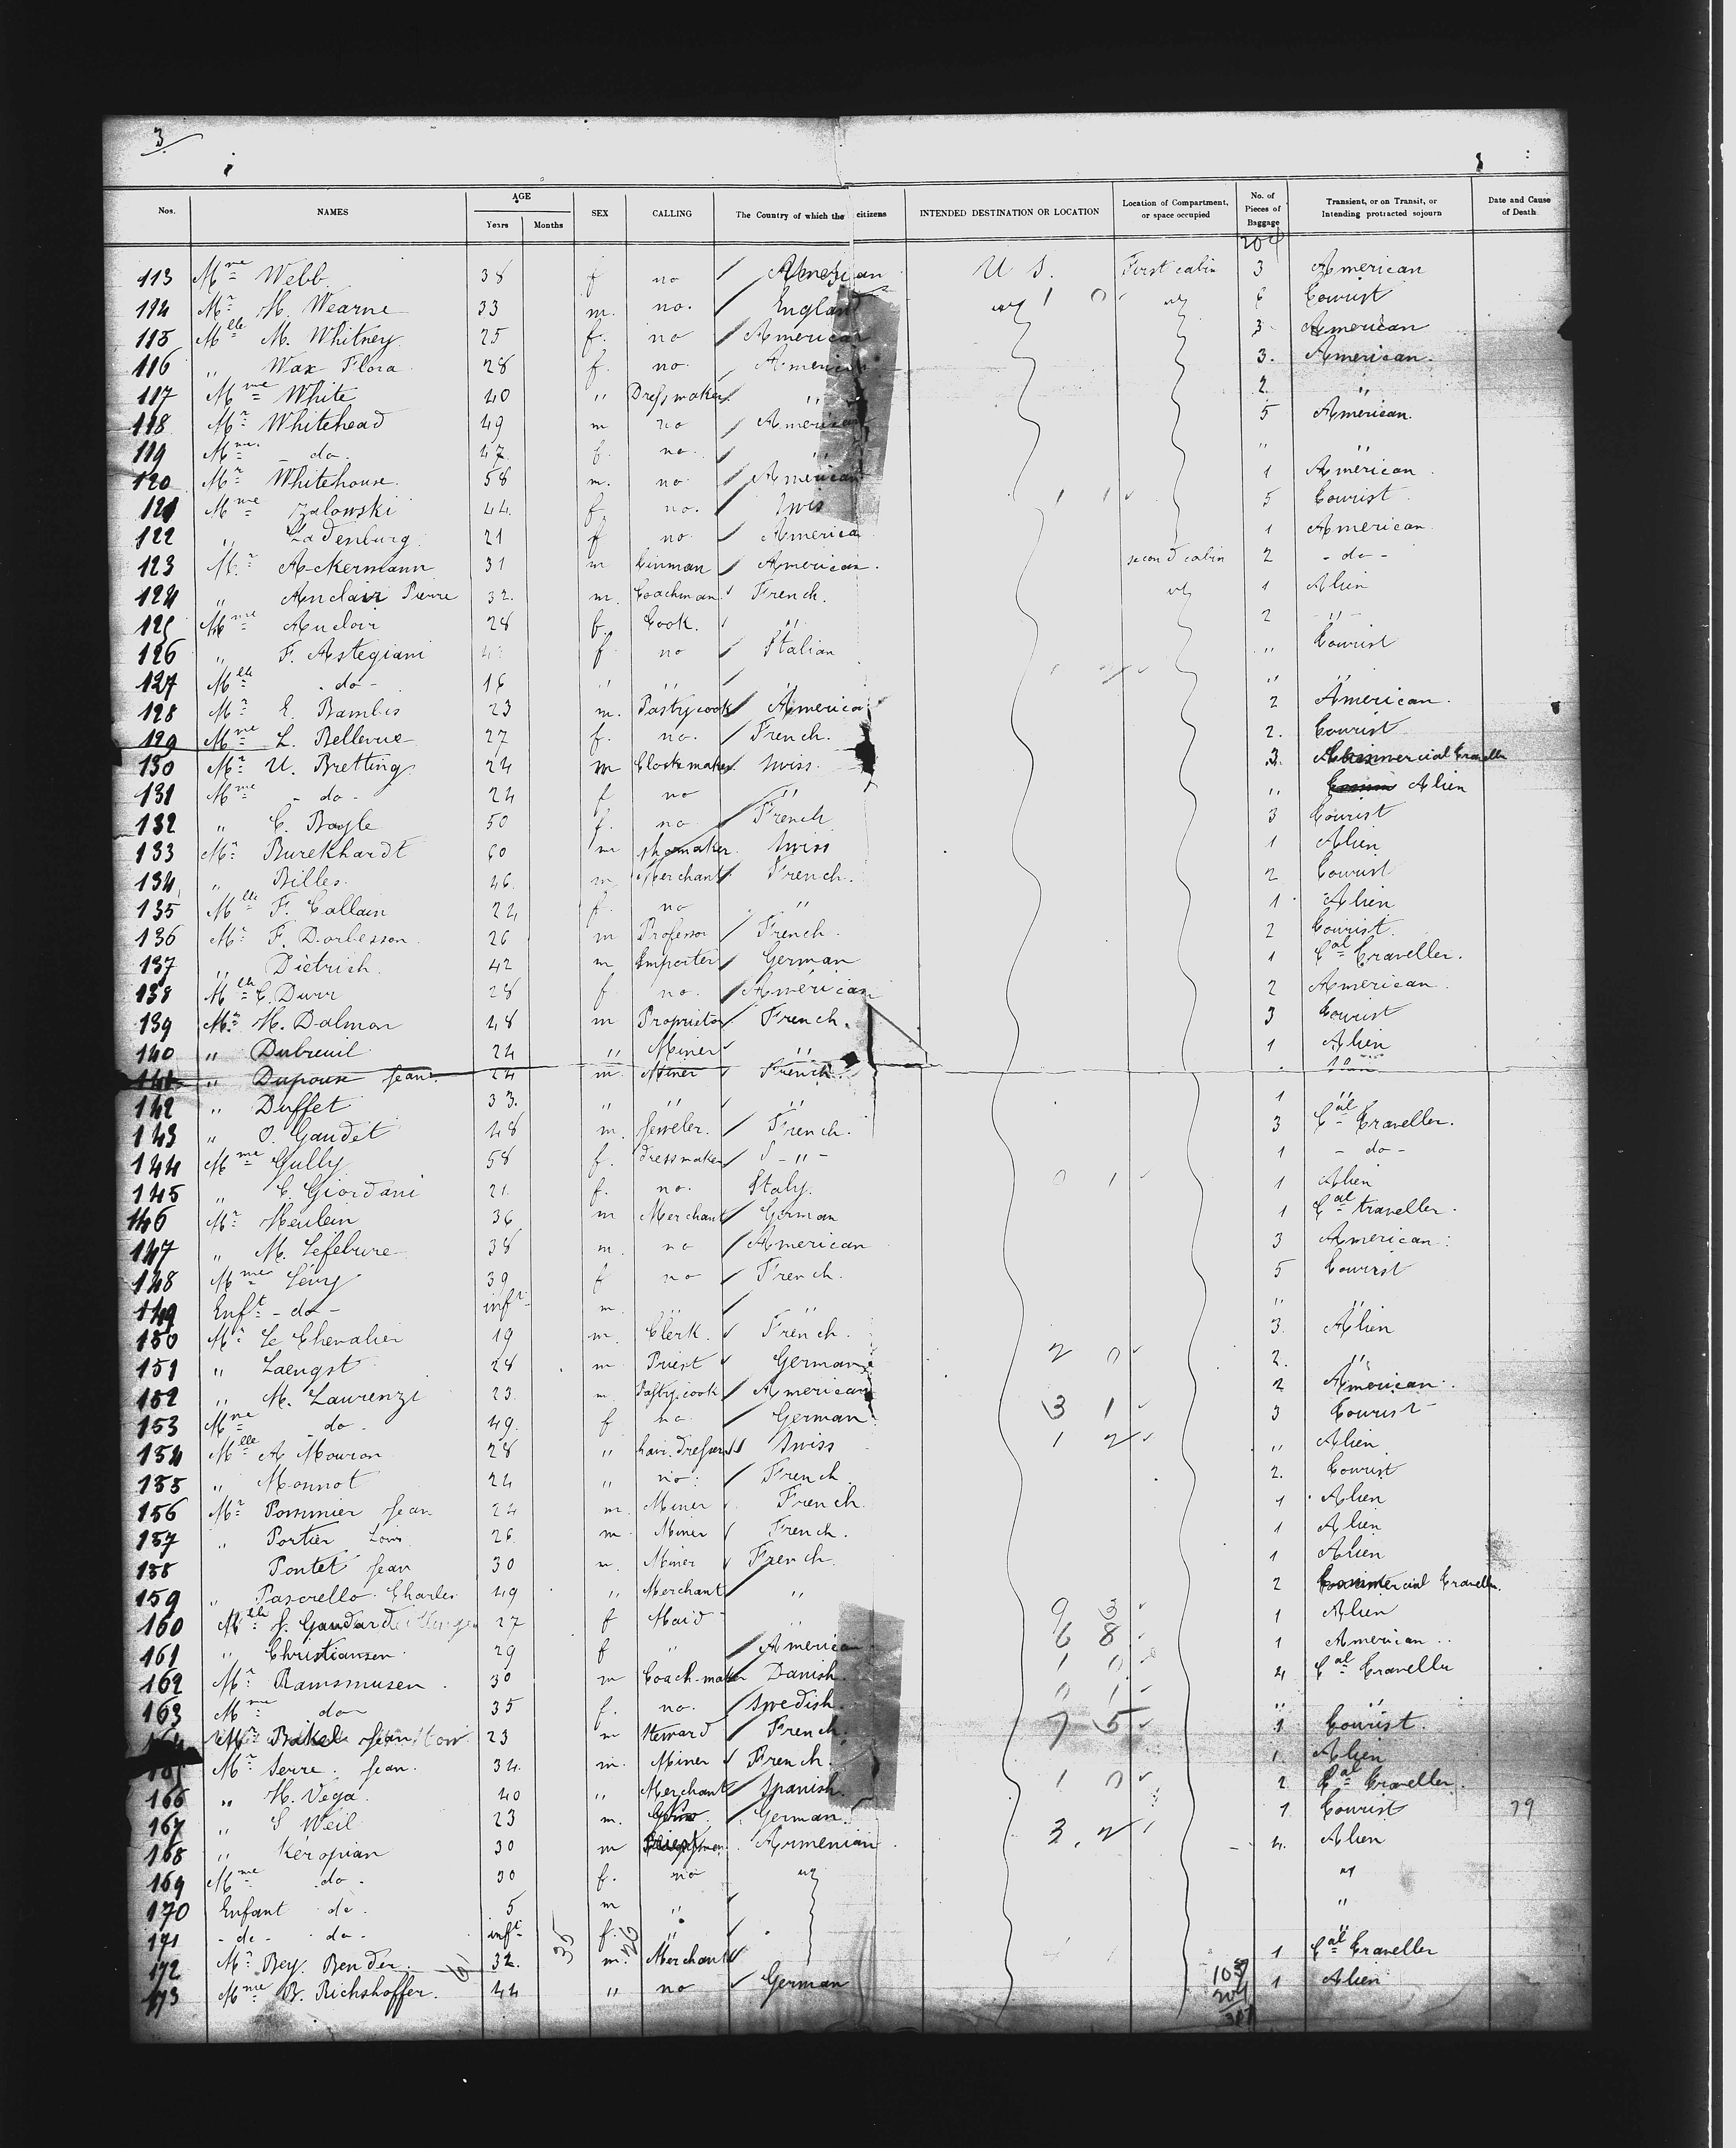 3
Nos. NAMES AGE Years Months SEX CALLING The Country of which the citizens INTENDED DESTINATION OR LOCATION Location of Compartment, or space occupied No. of Pieces of Baggage Transient, or on Transit, or Intending protracted sojourn Date and Cause of Death
204
113 Mme Webb 38 f no American U S. First cabin 3 American
114 Mr H. Wearne 33 m. no. England 1 0 6 Tourist
115 Mlle M. Whitney 25 f. no American 3 American
116 " Wax Flora 28 f. no American 3. American
117 Mme White 40 " Dressmaker " 2 "
118 Mr Whitehead 49 m no American 5 American
119 Mme - do - 47 f. no. " " "
120 Mr Whitehouse 58 m. no. American 1 American
121 Mme Zalowski 44 f no. Swis 1 1 5 Tourist
122 " Ladenburg 21 f no. America 1 American
123 Mr Ackermann 31 m Tinman American second cabin 2 - do -
124 " Auclair Pierre 32 m. Coachman French. 1 Alien
125 Mme Auclair 28 f. Cook. " 2 - " -
126 " F. Astegiani f no Italian " Tourist
127 Mlle - do - 16 " " " " "
128 Mr E. Bambis 23 m. Pastry cook America 2 American
129 Mme L. Bellevue 27 f. no. French. 2. Tourist
130 Mr U. Bretting 24 m Clockmaker Swiss. 3 Commercial Traveller
131 Mme - do - 24 f no " " Alien
132 " C. Bayle 50 f. no French 3 Tourist
133 Mr Burekhardt 60 m shoemaker Swiss 1 Alien
134 " Billes 46 m Merchant French. 2 Tourist
135 Mlle F. Callain 24 f. no " 1 Alien
136 Mr F. Dorbesson 26 m Professor French. 2 Tourist
137 " Dietrich 42 m Importer German 1 Cal Traveller.
138 Mlle C. Durr 28 f no. American 2 American
139 Mr H. Dalmar 48 m Proprietor French. 3 Tourist
140 " Dubreuil 24 " Miner " 1 Alien
141 " Dupoux Jean 24 m Miner French
142 " Duffet 33. " " " 1 "
143 " O. Gaudet 48 m. Jeweler. French. 3 Cal Traveller.
144 Mme Gully 58 f. dressmaker - " - 1 - do -
145 " C. Giordani 21 f. no. Italy. 0 1 1 Alien
146 Mr Heulein 36 m Merchant German 1 Cal traveller.
147 " M. Lefebure 38 m. no American 3 American
148 Mme Levy 39 f no French. 5 Tourist
149 Enft - do - inft m. " " " "
150 Mr Le Chevalier 19 m. Clerk. French. 3 Alien
151 " Laengst 28 m Priest German 2 0 2. "
152 " M. Laurenzi 23 m Pastry cook American 2 American
153 Mme - do - 49 f no German 3 1 3 Tourist
154 Mlle A Mouron 28 " hair dresser Swiss 1 2 " Alien
155 " Monnot 24 " no. French 2. Tourist
156 Mr Pommier Jean 24 m Miner French 1 Alien
157 " Portier Louis 26 m Miner French. 1 Alien
158 Pontet Jean 30 m. Miner French. 1 Alien
159 " Pascrello Charles 49 " Merchant " 2 Commercial Traveller.
160 Mlle J. Gaudard 27 f Maid " 9 3 1 Alien
161 " Christiansen 29 f " American 6 8 1 American
162 Mr Ramsmusen 30 m Coach-maker Danish. 1 0 4 Cal Traveller
163 Mme do 35 f. no. Swedish. 0 1 " "
164 23 m Steward French 7 5 1 Tourist.
165 Mr Serre Jean 34 m. Miner French. 1. Alien
166 " H. Vega 40 " Merchant Spanish 1 0 2 Cal Traveller.
167 " S Weil 23 m. German 1 Tourist 79
168 " Keropian 30 m Armenian 3. 2 4. Alien
169 Mme do. 30 f. no "
170 Enfant do. 5 m " "
171 - do - do - inft f. " "
172 Mr Bey. Bender. 32. m. Merchant 1 Cal Traveller
173 Mme B. Richshoffer. 44 " no German 1 Alien
61 35 26
103
204
307